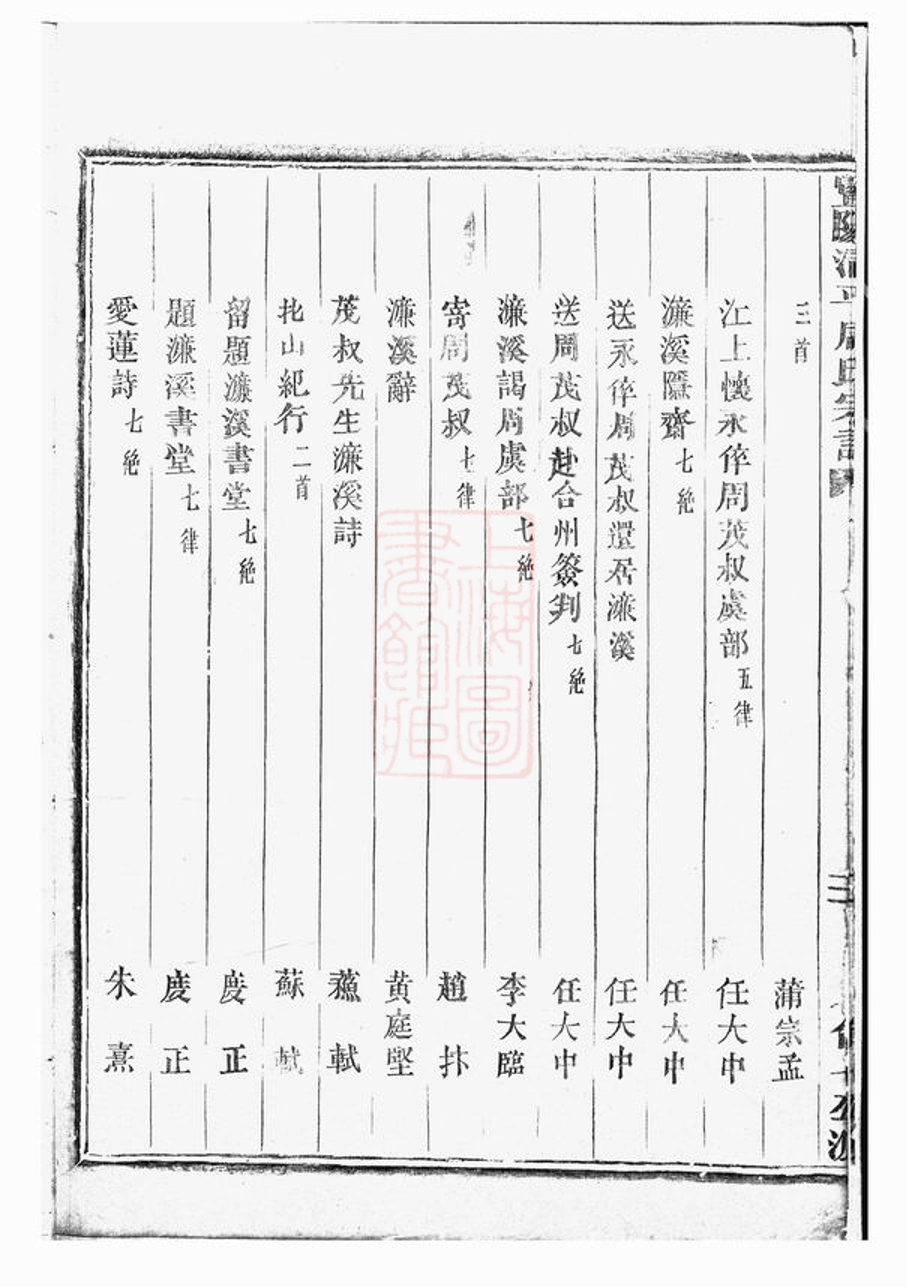 三首　蒲宗孟
江上懷永倅周茂叔虞部五律　任大中
濂溪隱齋七絶　任大中
送永倅周茂叔還居濂溪　任大中
送周茂叔赴合州簽判七絶　任大中
濂溪謁周虞部七絶　李大臨
寄周茂叔七律　趙抃
濂溪辭　黃庭堅
茂叔先生濂溪詩　蘇軾
山紀行二首　蘇軾
留題濂溪書堂七絶　度正
題濂溪書堂七律　度正
愛蓮詩七絶　朱熹
上海圖
書館藏